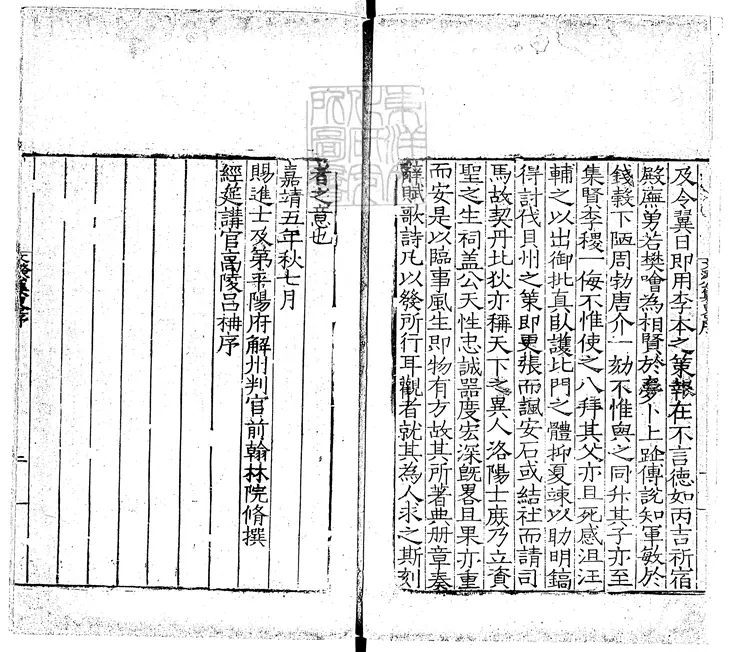 及令翼日即用李本之策報在不言徳如丙吉祈宿
殿廡勇若樊噲為相賢於夢卜上跐傳說知軍敏於
錢穀下陋周勃唐介一劾不惟與之同升其子亦至
集賢李稷一侮不惟使之八拜其父亦且死感沮汪
輔之以出御批真臥護北門之體抑夏竦以助明鎬
得討伐貝州之策即更張而諷安石或結社而請司
馬故契丹北狄亦稱天下之異人洛陽士庶乃立資
聖之生祠盖公天性忠誠器度宏深旣畧且果亦重
而安是以臨事風生即物有方故其所著典册章奏
辭賦歌詩凡以發所行耳觀者就其為人求之斯刻
者之意也
嘉靖五年秋七月
賜進士及第平陽府解州判官前翰林院脩撰
經筵講官高陵呂柟序